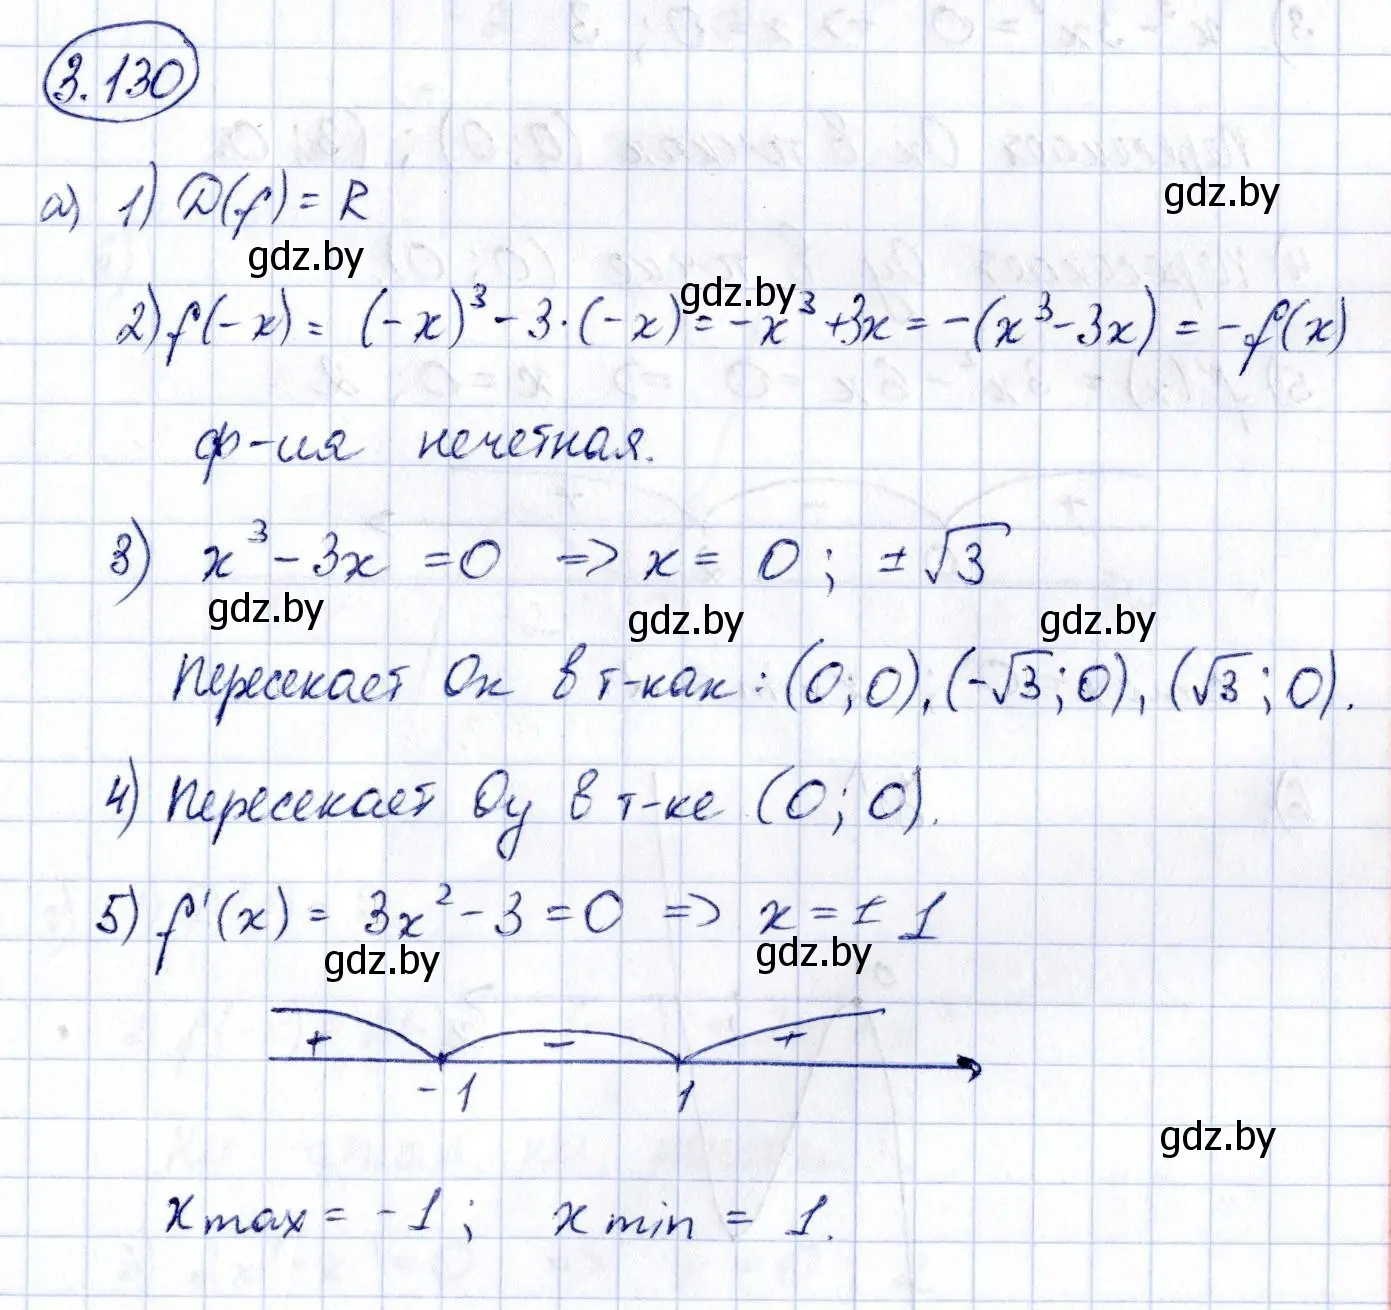 3.130
а) 1) D(f) = R
gdz.by
gdz.by
gdz.by
2) f(-x) = (-x)³ - 3·(-x) = -x³ + 3x = -(x³ - 3x) = -f(x)
ф-ия нечетная.
3) x³ - 3x = 0 => x = 0; ±√3
gdz.by gdz.by gdz.by
Пересекает Ох в т-ках: (0;0), (-√3;0), (√3;0).
4) Пересекает Оу в т-ке (0;0).
5) f'(x) = 3x² - 3 = 0 => x = ± 1
gdz.by gdz.by
+ - +
-1 1
gdz.by
x max = -1; x min = 1.